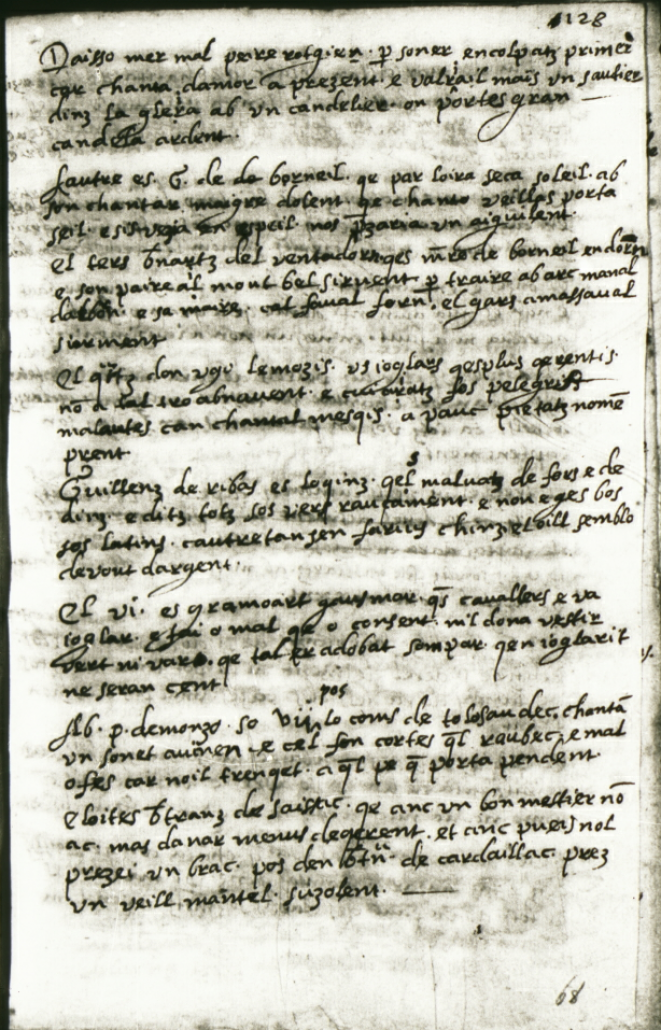 1128
Daisso mer mal peire rotgiern. p soner encolpatz primer
cor chanta damor a prezent. e valrail mais vn sautier
dinz la glera ab vn candelier. on portes gran
candela ardent.
Lautre es. G. de de borneil. qe par loira seca soleil. ab
son chantar maigre dolent. qe chanto veillas porta
seil. e sis vezia en espeil. nos pzaria vn aiguilent.
El ters bnartz del ventadorn. qes de borneil en dorn
e son paire al mont bel sirvent. p traire ab arc manal
dalborn. e sa maire. cal faval forn. el gars amassaval
sierment
El don vgo lemozis. vs ioglars qesplus qerentis.
no a tal tro abnavent. e cuiaratz fos pelegris
malautes can chantal mesqis. a pauc pietatz nome
prent
Guillenz de ribas es lo qinz. qel s malvatz de fors e de
dinz. e ditz totz sos vers raucament. e non eges bos
sos latins. cautretan sen faria chinz el oill semblo
de vout dargent.
El vi. es gramoart gausmar. qs cavallers e va
ioglar. e fai o mal qe o consent. nil dona vestir
vert ni vare. qe tal er adobat sempar. qen ioglarit
ne seran cent
pos
Ab. p. demonzo. so vij. lo coms de tolosau dec. chanta
vn sonet avinen. e cel fon cortes ql raubec. e mal
o fes car noil trenqet. a ql pe q porta pendent.
e loites btranz de saissac. qe anc vn bon mestier no
ac. mas danar menus de qerent. et anc pueis nol
prezei vn brac. pos den de cardaillac. prez
vn veill mantel. suzolent.
68